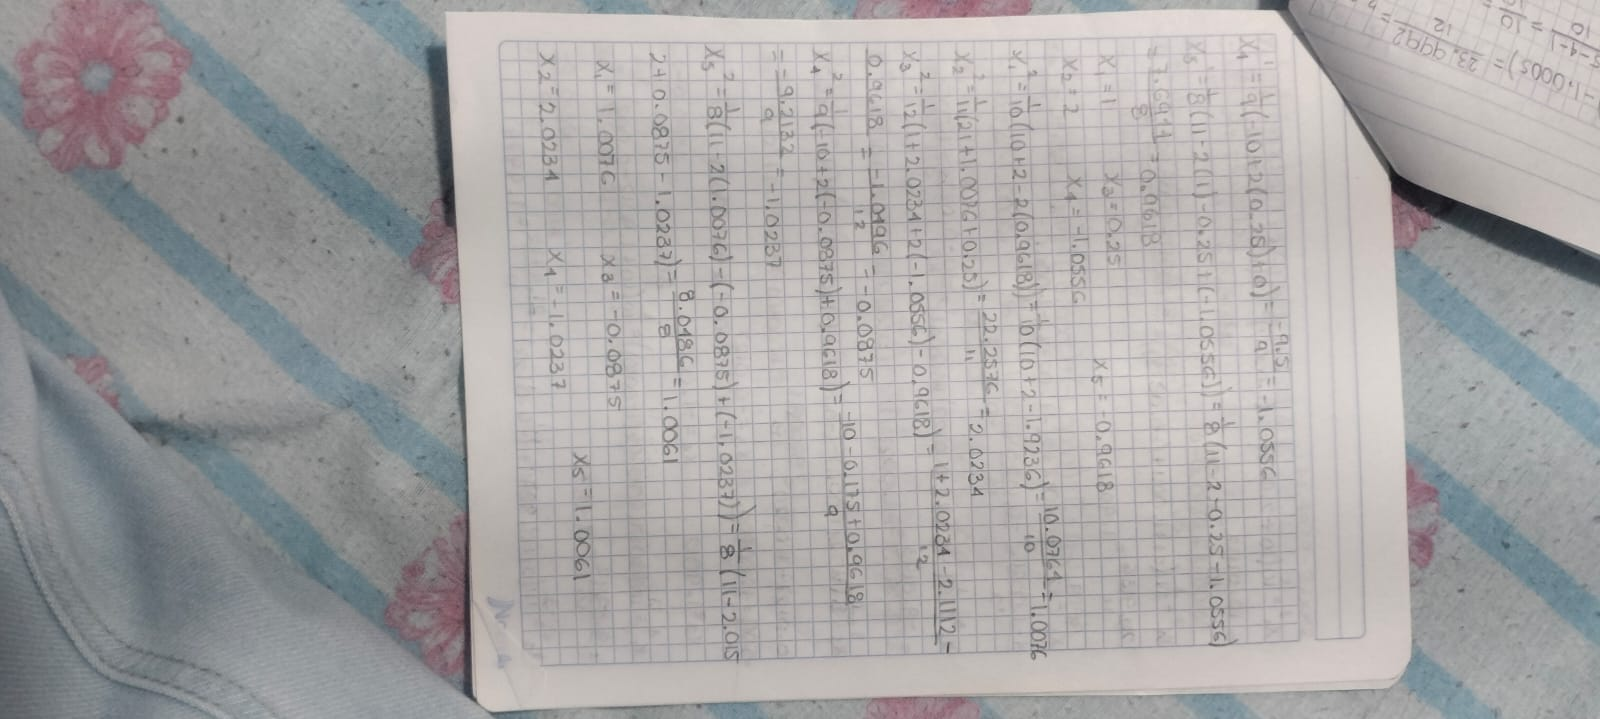 X₄¹=1/9(-10+2(0.25)+0)=-9.5/9=-1.0556
X₅¹=1/8(11-2(1)-0.25+(-1.0556))=1/8(11-2-0.25-1.0556)
=7.6944/8=0.9618
X₁=1 X₃=0.25 X₅=-0.9618
X₂=2 X₄=-1.0556
X₁²=1/10(10+2-2(0.9618))=1/10(10+2-1.9236)=10.0764/10=1.0076
X₂²=1/11(21+1.0076+0.25)=22.2576/11=2.0234
X₃²=1/12(1+2.0234+2(-1.0556)-0.9618)=1+2.0234-2.1112-
0.9618/12=-1.0496/12=-0.0875
X₄²=1/9(-10+2(-0.0875)+0.9618)=-10-0.175+0.9618/9
=-9.2132/9=-1.0237
X₅²=1/8(11-2(1.0076)-(-0.0875)+(-1.0237))=1/8(11-2.015
2+0.0875-1.0237)=8.0486/8=1.0061
X₁=1.0076 X₃=-0.0875 X₅=1.0061
X₂=2.0234 X₄=-1.0237
-1.0005)=23.9992/12=